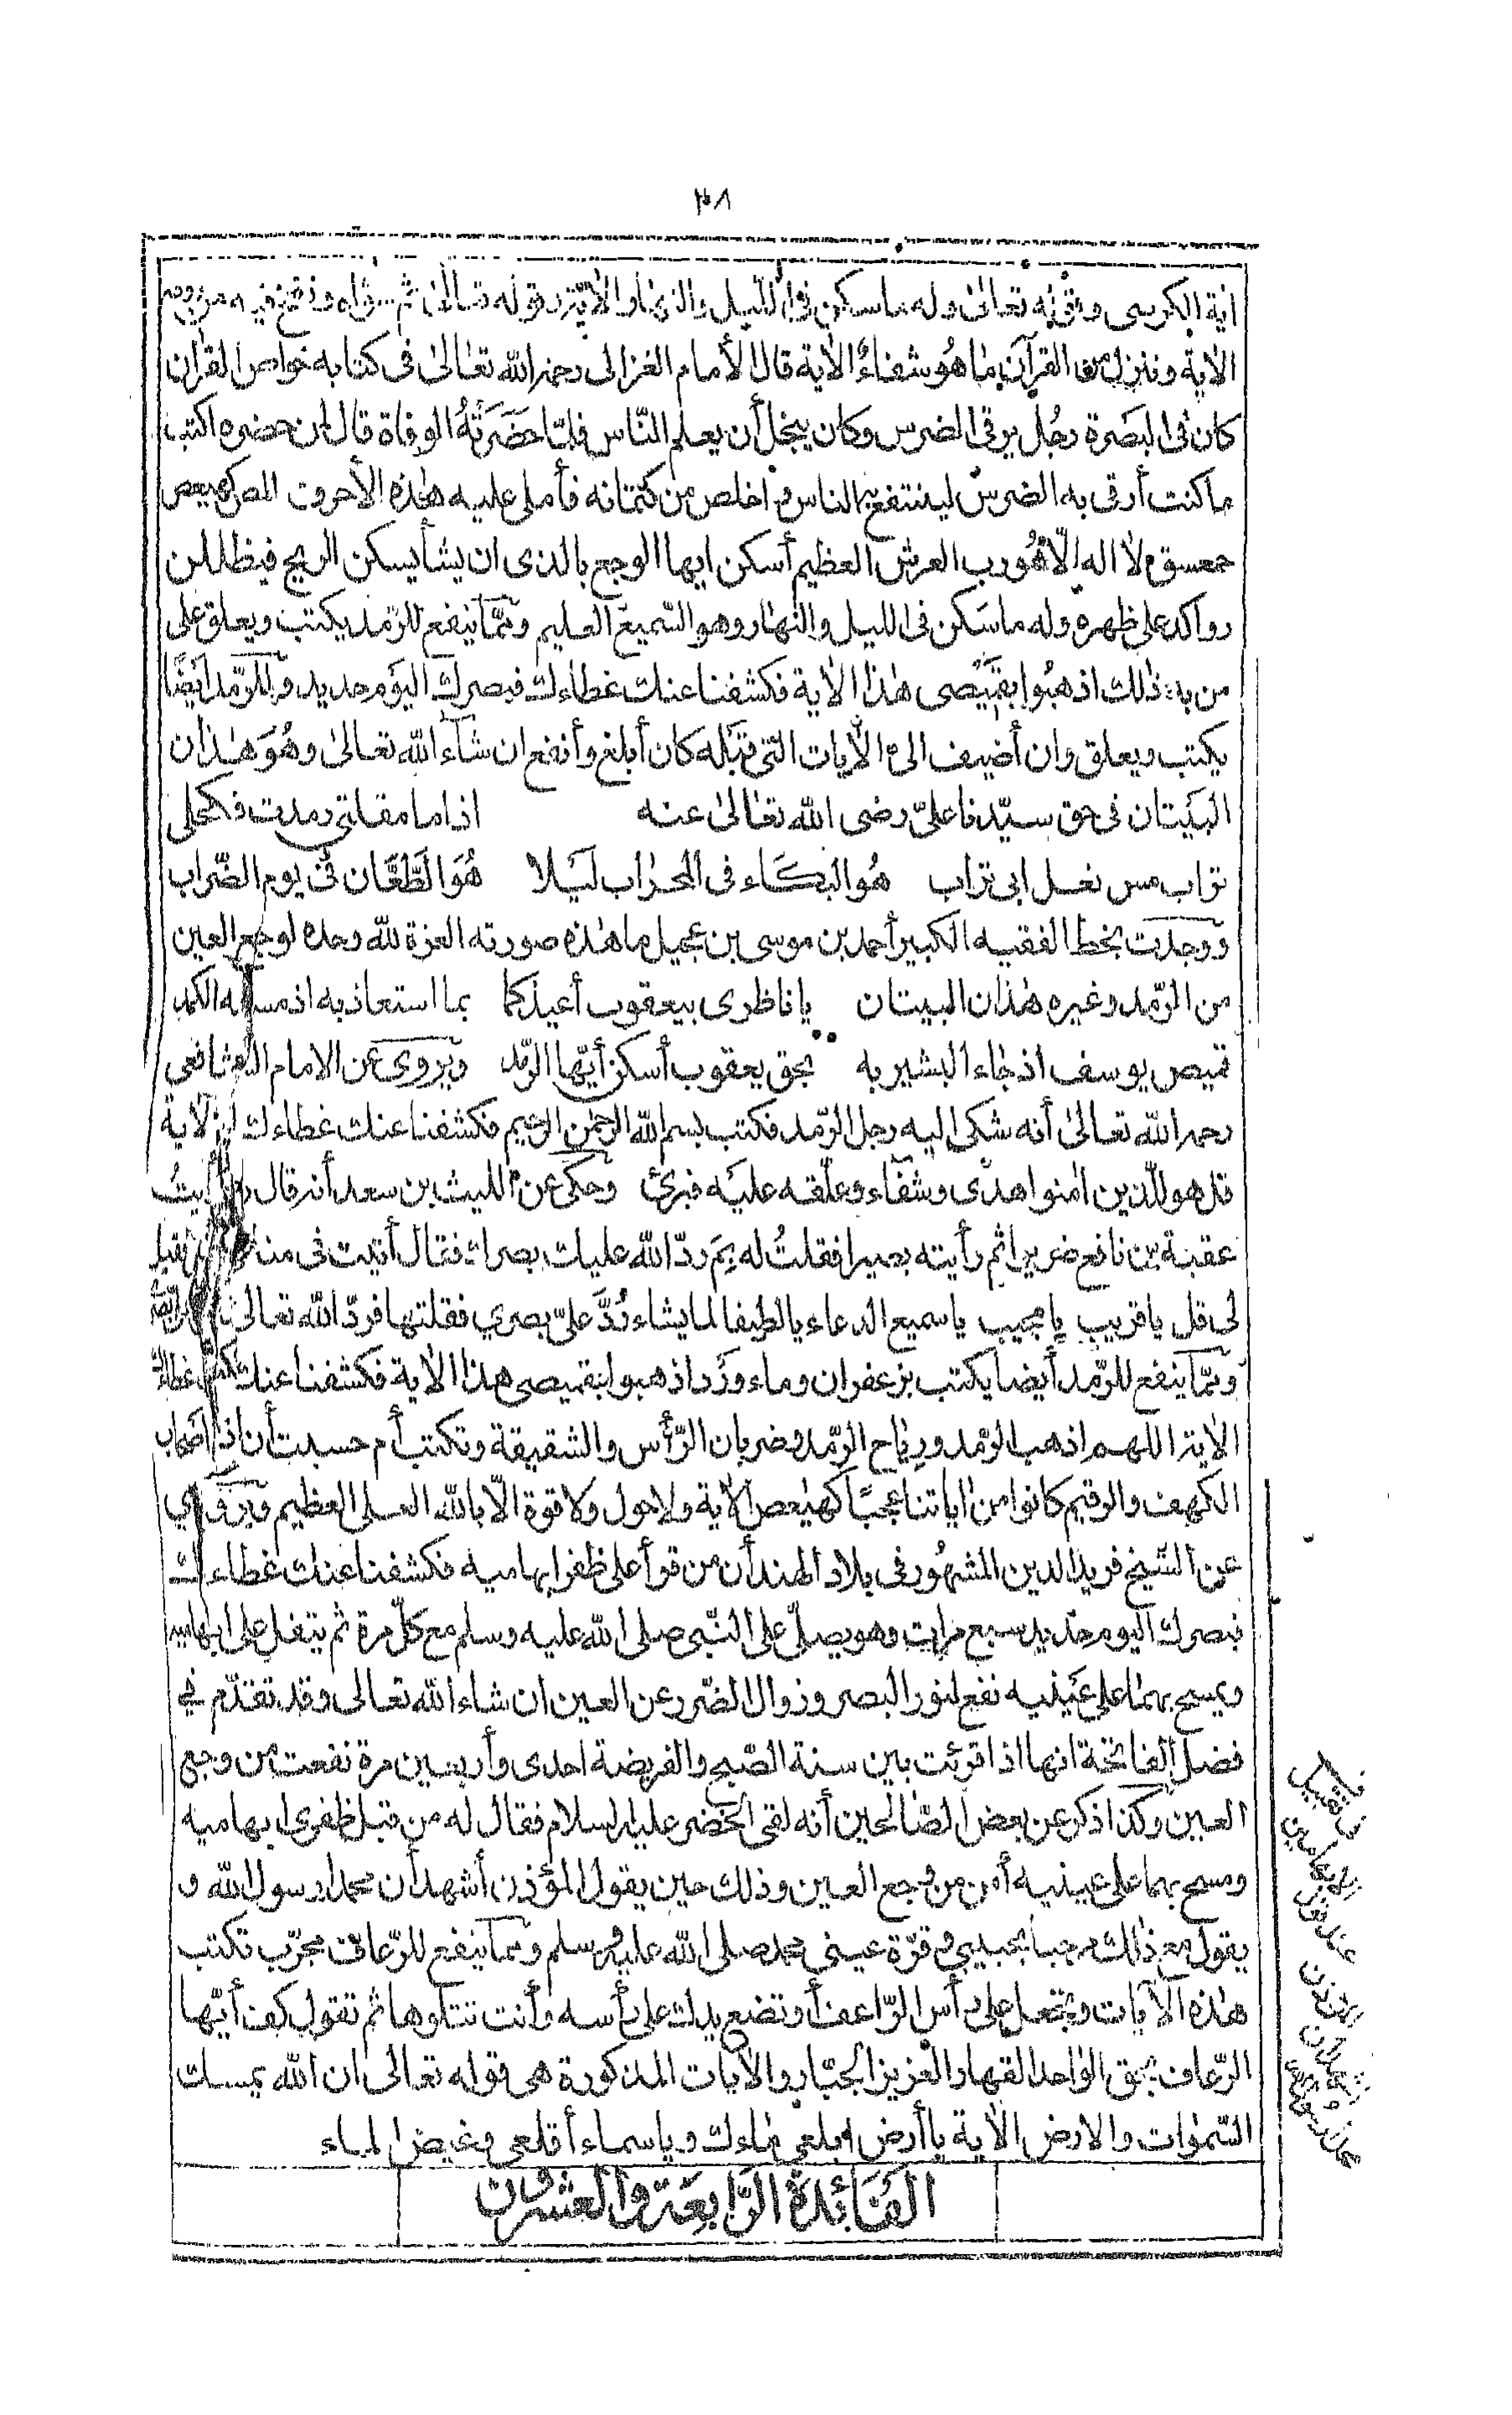 اية الكرسى وقوله تعالى وله ما سكن فى الليل والنهار الاٰية وقوله تعالىٰ ثم سواه ونفخ فيه من روحه
الاٰية وننزل من القرآن ما هُو شفاءٌ الاٰية قال الأمام الغزالى رحمه الله تعالىٰ فى كتابه خواص القراٰن
كان فى البَصَرة رجُل يرقى الضرس وكان يبخل أن يعلم النّاس فلمّا حَضَرَتْهُ الوفاة قال لمن حضره اكتب
ما كنت أرقى به الضرس لينتفع به الناس واخلص من كتمانه فأملى عليه هٰذه الأحروف المص كهيعص
حمعسق لا اله الّا هُو رب العرش العظيم أسكن ايها الوجع بالذى ان يشأ يسكن الريح فيظللن
رواكد على ظهره وله ما سَكن فى الليل والنهار وهو السّميع العليم ومّما ينفع للرّمد يكتب ويعلق على
من به ذٰلك اذهبُوا بقَمِيْصى هٰذا الاٰية فكشفنا عنك غطاءك فبصرك اليوْم حديد وللرّمد أيضًا
يكتب ويعلق وان أضيف الى الاٰيات التّى قبَله كان أبلغ وأنفع ان شآء اللّٰه تعالىٰ وهُوَ هٰذان
البَيْتان فى حق سيّدنا علىّ رضى الله تعالىٰ عنه اذا ما مقلتى رمدت فكحلى
تراب مس نعل ابى تراب هُو البكّاء فى المحراب لَيْلا هُوَ الطَّعَّان فى يوم الضّراب
ووجدت بخط الفقيه الكبير أحمد بن موسى بن عجيل ما هٰذه صورته العزة لله وحده لوجع العين
من الرّمد وغيره هٰذان البيتان يا ناظرى بيعقوب أعيذكما بما استعاذ به اذ مسه الكمد
قميص يوسف اذ جاء البشير به بحق يعقوب أسكن أيّها الرّمد ويروىٰ عن الامام الشافعى
رحمه الله تعالىٰ أنه شكى اليه رجل الرّمد فكتب بسم الله الرحمٰن الرحيم فكشفنا عنك غطاءك الاٰية
قل هو للّذين اٰمنوا هدًى وشفاء وعلّقه عليَه فبرئ وحكى عن الليث بن سعد أنه قال رأيتُ
عقبة بن نافع ضريرا ثم رأيته بصيرا فقلتُ له بِمَ ردّ الله عليك بصرك فقال أتيت فى منامى فقيل
لى قل يا قريب يا مجيب يا سميع الدعاء يا لطيفا لما يشاء رُدَّ علىّ بصري فقلتها فردّ اللّٰه تعالى
ومّما ينفع للرّمد أيضا يكتب بزعفران وماء ورْد اذهبوا بقميصى هذا الاٰية فكشفنا عنك غطاءك
الاٰية اللهم اذهب الرّمد ورياح الرّمد وضربان الرّأس والشقيقة وتكتب أم حسبت أن اصحاب
الكهف والرقيم كانوا من اٰياتنا عجبًا كهيٰعص الاٰية ولا حول ولا قوة الّا بالله العلى العظيم ويروي
عن الشّيخ فريد الدين المشهُور فى بلاد الهند أن من قرأ على ظفر ابهاميه فكشفنا عنك غطاءك
فبصرك اليوم حديد سبع مرات وهو يصلّى على النّبى صلى الله عليه وسلم مع كلّ مرة ثم يتفل على ابهاميه
ويمسح بهما على عَيْنيه نفع لنور البصر وزوال الضّرر عن العين ان شاء الله تعالى وقد تقدّم في
فضل الفاتحة انها اذا قرئت بين سنة الصّبح والفريضة احدى وأربعين مرة نفعت من وجع
العين وكذا ذكر عن بعض الصّالحين أنه لقى الخضر عليه السلام فقال له من قبل ظفرى ابهاميه
ومسح بهما على عينيه أمن من وجع العين وذلك حين يقول المؤذن أشهد أن محمدا رسول الله و
يقول مع ذٰلك مرحبا بحبيبي وقرّة عينى محمد صلى الله عليه وسلم ومّما ينفع للرّعاف مجرّب تكتب
هٰذه الاٰيات وتجعل على رأس الرّاعف أو تضع يدك على رأسه وأنت تتلوها ثم تقول كف أيّها
الرّعاف بحق الواحد القهار العزيز الجبّار والاٰيات المذكورة هى قوله تعالى ان الله يمسك
السّمٰوات والارض الاٰية يا أرض ابلعى ماءك ويا سماء أقلعى وغيض الماء
الفَائِدَة الرَّابِعَة والعشرُون
ف تقبيل
الابهامين
عند قول
المؤذن
أشهد أن
محمدا رسول الله